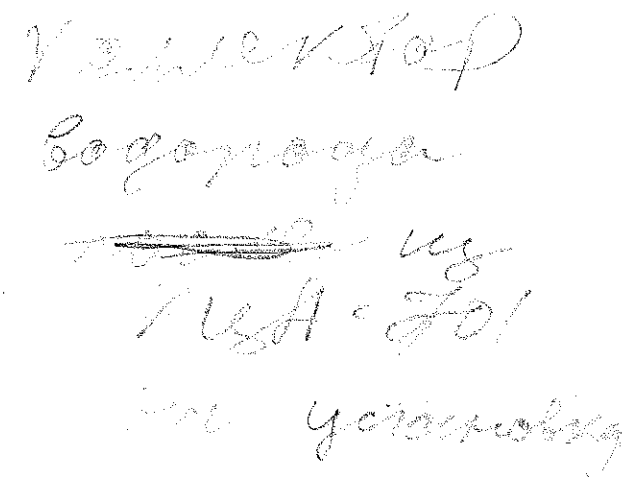 Коллектор
водорода
из
ГЦА-701
на установку